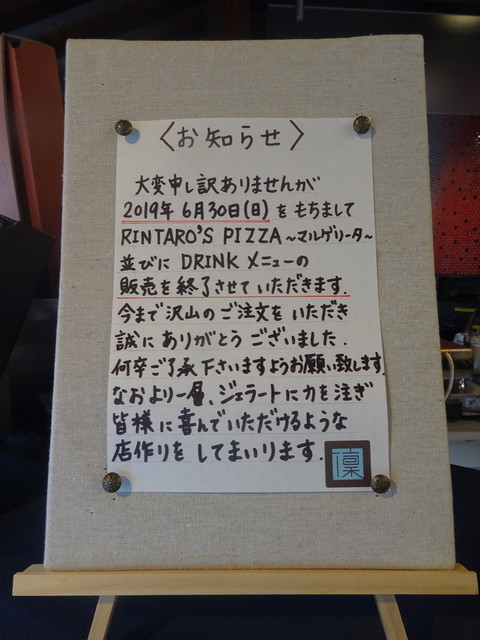 〈お知らせ〉
大変申し訳ありませんが
2019年 6月30日(日)をもちまして
RINTARO'S PIZZA～マルゲリータ～
並びに DRINK メニューの
販売を終了させていただきます.
今まで沢山のご注文をいただき
誠にありがとうございました.
何卒ご了承下さいますようお願い致します.
なおより一層、ジェラートに力を注ぎ
皆様に喜んでいただけるような
店作りをしてまいります.
凛